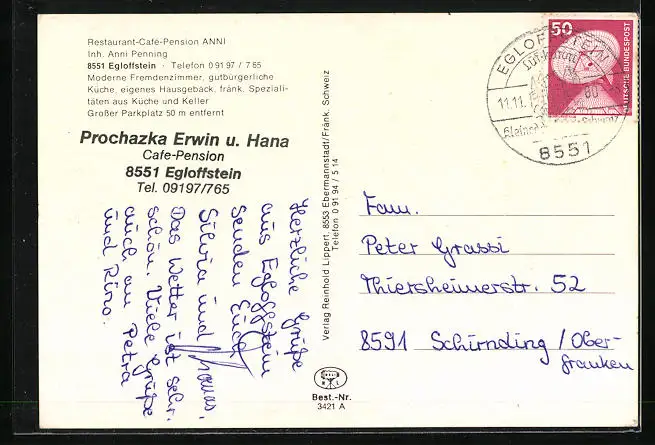 Restaurant-Café-Pension ANNI
Inh. Anni Penning
8551 Egloffstein · Telefon 0 91 97 / 7 65
Moderne Fremdenzimmer, gutbürgerliche
Küche, eigenes Hausgebäck, fränk. Speziali-
täten aus Küche und Keller
Großer Parkplatz 50 m entfernt
Prochazka Erwin u. Hana
Cafe-Pension
8551 Egloffstein
Tel. 09197/765
Herzliche Grüße
aus Egloffstein
senden Euch
Silvia und Thomas.
Das Wetter ist sehr
schön. Viele Grüße
auch an Petra
und
Verlag Reinhold Lippert, 8553 Ebermannstadt/Fränk. Schweiz
Telefon 0 91 94 / 5 14
Best.-Nr.
3421 A
EGLOFFSTEIN
Luftkurort
11.11.
80
8551
50
DEUTSCHE BUNDESPOST
Fam.
Peter Grassi
Thiersheimerstr. 52
8591 Schirnding / Ober-
franken